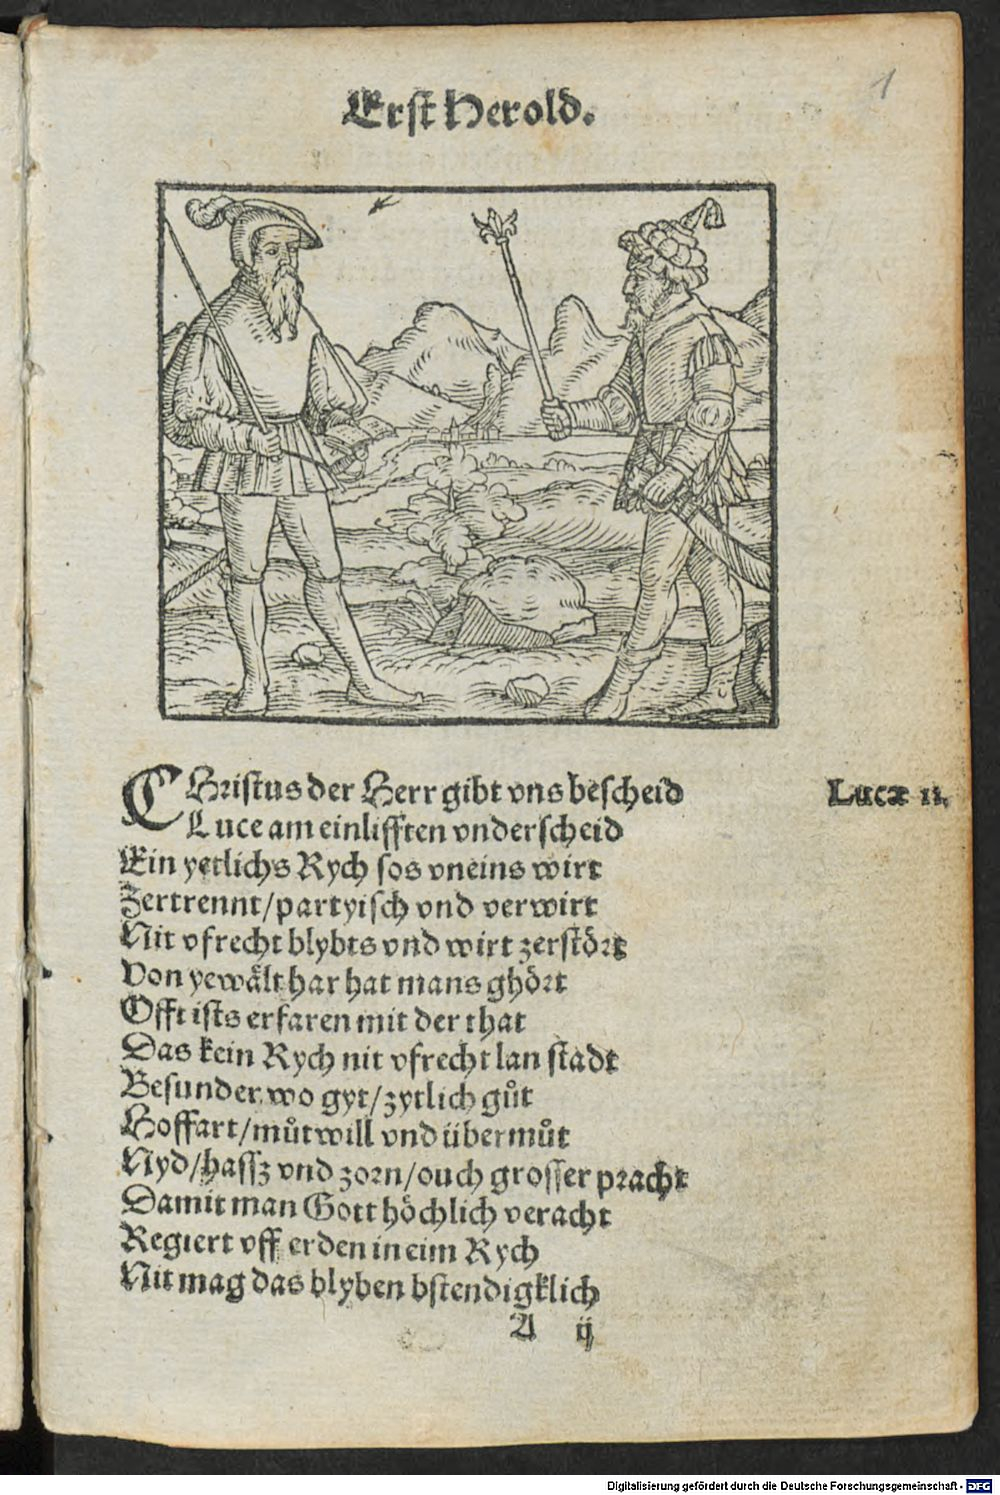 1
Erst Herold.
CHristus der Herr gibt vns bescheid
Lucæ 11.
Luce am einlifften vnderscheid
Ein yetlichs Rych sos vneins wirt
Zertrennt/partyisch vnd verwirt
Nit vfrecht blybts vnd wirt zerstört
Von yewält har hat mans ghört
Offt ists erfaren mit der that
Das kein Rych nit vfrecht lan stadt
Besunder wo gyt/zytlich gůt
Hoffart/můtwill vnd übermůt
Nyd/hassz vnd zorn/ouch grosser pracht
Damit man Gott höchlich veracht
Regiert vff erden in eim Rych
Nit mag das blyben bstendigklich
A ij
Digitalisierung gefördert durch die Deutsche Forschungsgemeinschaft - DFG